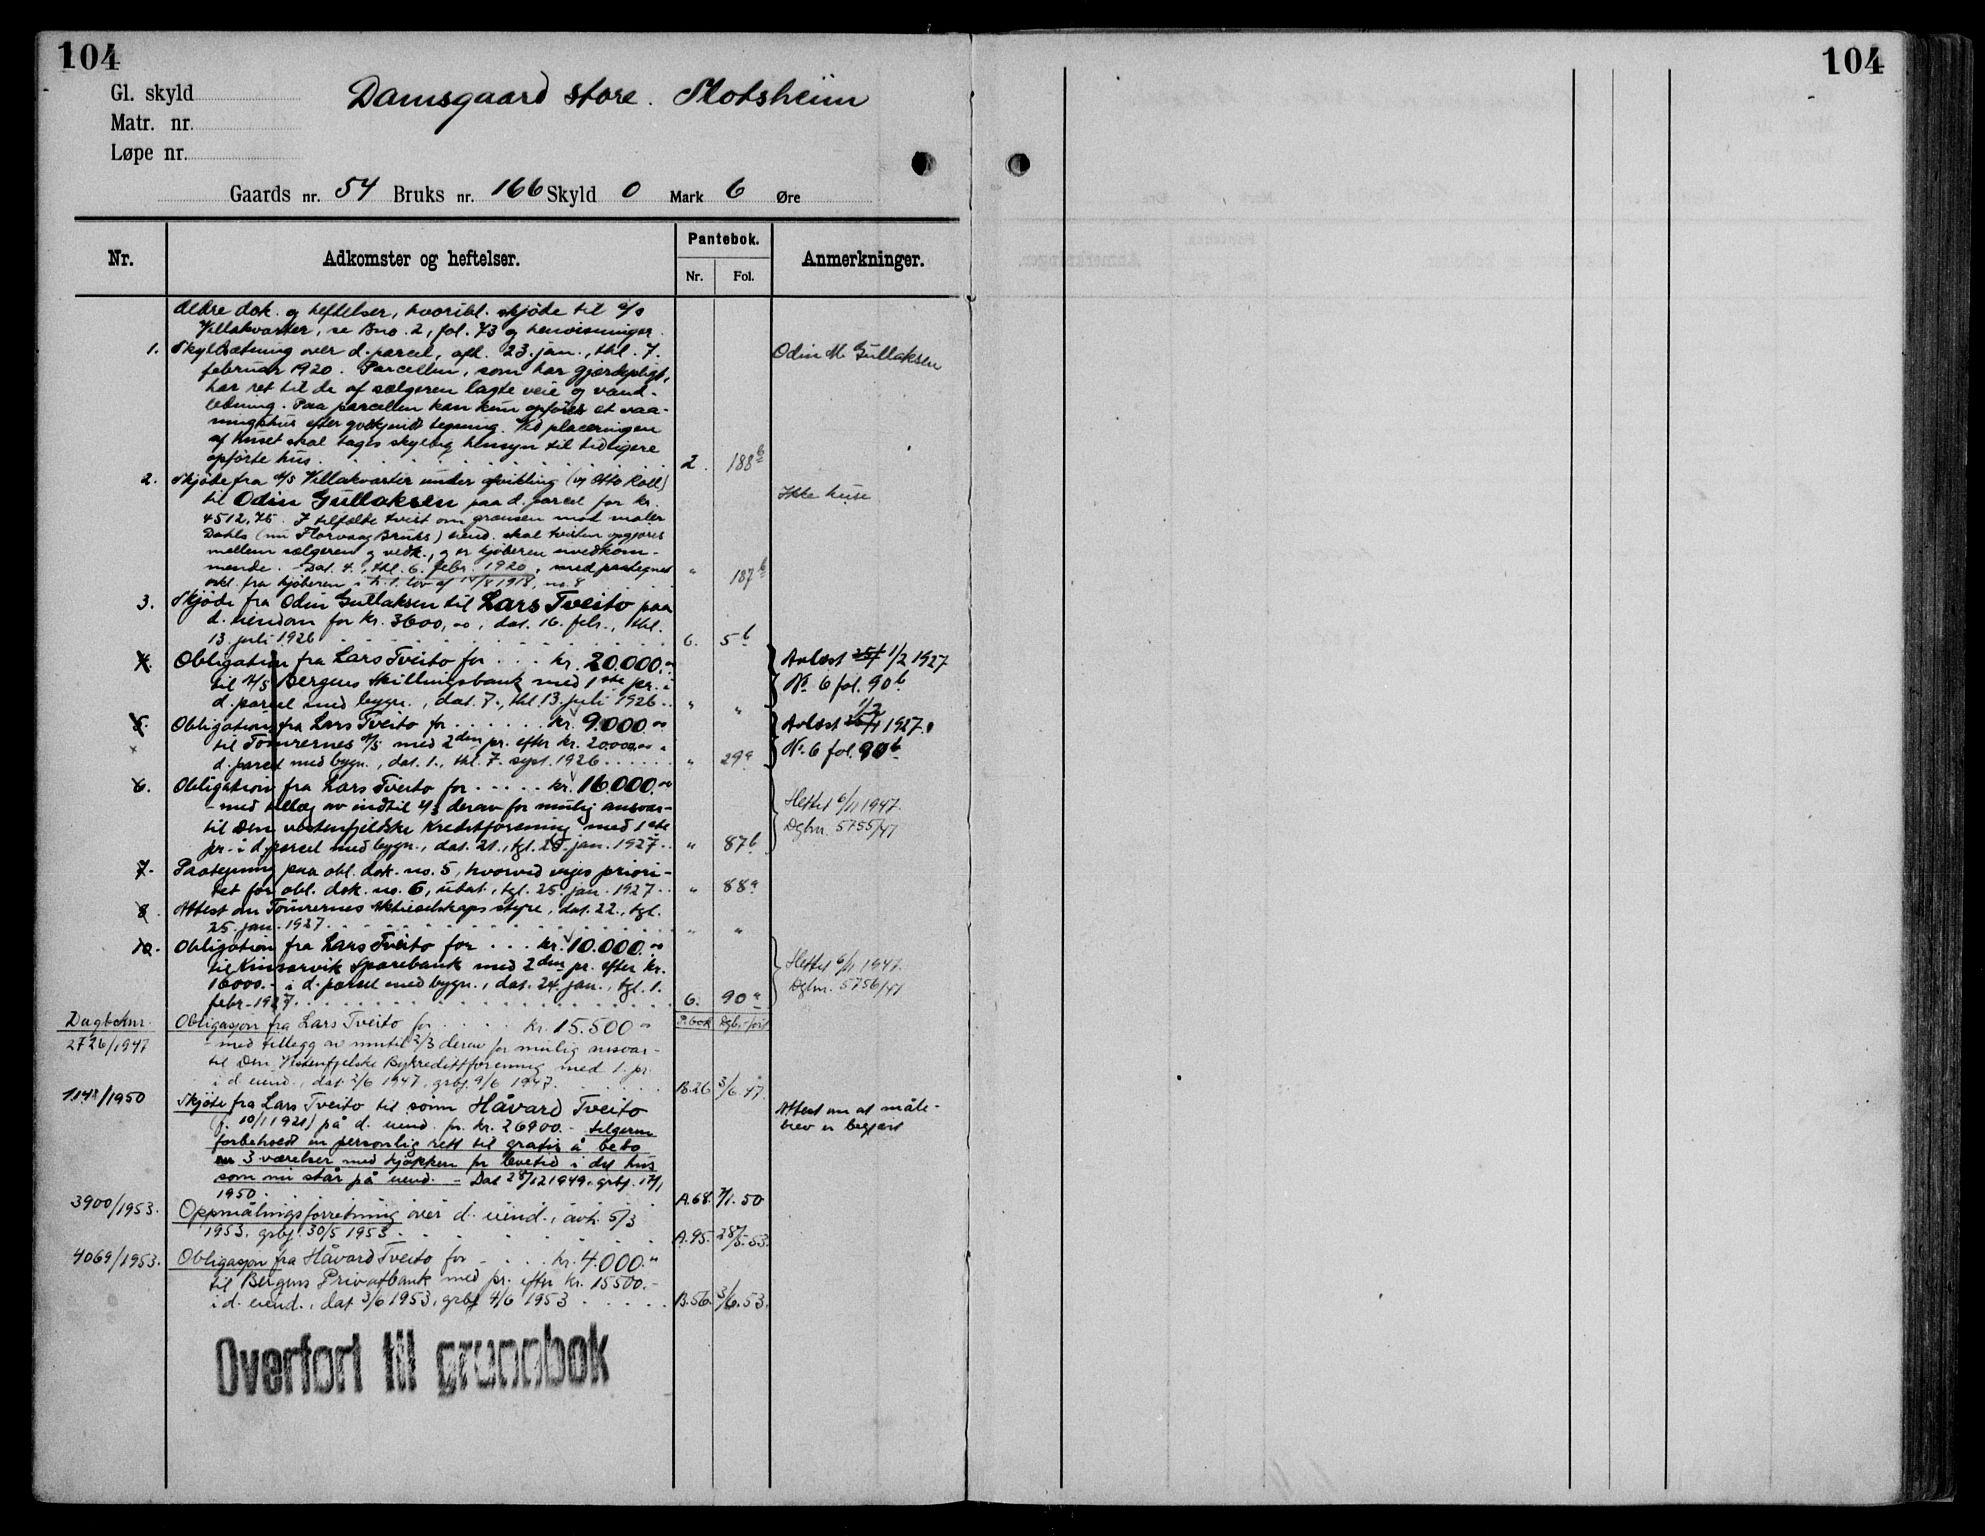 104
104
Gl. skyld
Damsgaard store. Slotsheim
Matr. nr.
Løpe nr.
Gaards nr. 54 Bruks nr. 166 Skyld 0 Mark 6 Øre
Nr.
Adkomster og heftelser.
Pantebok.
Nr. Fol.
Anmerkninger.
Ældre dok. og heftelser, hvoribl. skjøde til a/s
Villakvarter, se Bno. 2, fol. 73 og henvisninger.
1. Skyldsætning over d. parcel, afh. 23. jan., thl. 7. Odin M Gullaksen
februar 1920. Parcellen, som har gjærdepligt,
har ret til de af sælgeren lagte veie og vand-
ledning. Paa parcellen kan kun opføres et vaa-
ningshus efter godkjendt tegning. Ved placeringen
af huset skal tages skyldig hensyn til tidligere
opførte hus. 2. 188 b
2. Skjøde fra a/s Villakvarter under afvikling (v/ Otto Roll)
til Odin Gullaksen paa d. parcel for kr. Ikke huse
4512,75. I tilfælde tvist om grænsen mod maler
Dahls (nu Florvaag Bruks) eiend. skal tvisten opgjøres
mellem sælgeren og vedk., og er kjøberen uvedkom-
mende. Dat. 4., thl. 6. febr. 1920, med paategnet " 187 b
erkl. fra kjøberen i h. t. lov af 14/8 1918, no. 8
3. Skjøde fra Odin Gullaksen til Lars Tveito paa
d. eiendom for kr. 3600,00, dat. 16. febr., thl.
13. juli 1926 6. 5 b
4. Obligation fra Lars Tveito for kr. 20.000.00 Avlæst 25/1 1/2 1927
til a/s Bergens Skillingsbank med 1ste pr. i No 6 fol. 90 b
d. parcel med bygn., dat. 7., thl. 13. juli 1926 " "
5. Obligation fra Lars Tveito for kr. 9.000 00 Avlæst 1/2 1927.
til Tomrernes a/s med 2den pr. efter kr. 20000,00 i No 6 fol. 90 b
d. parcel med bygn., dat. 1., thl. 7. sept. 1926 " 29 a
6. Obligation fra Lars Tveito for kr. 16.000.00
- med tillæg av indtil 2/3 derav for mulig ansvar- Hettet 6/11 1947.
til Den vestenfjeldske Kreditforening med 1ste Dgbnr. 5755/47
pr. i d. parcel med bygn., dat. 21., tgl. 25. jan. 1927 " 87 b
7. Paategning paa obl. dok. no. 5, hvorved viges priori-
tet for obl. dok. no. 6, udat., tgl. 25. jan. 1927 " 88 a
8. Attest om Tomrernes Aktieselskaps styre, dat. 22., tgl.
25. jan. 1927 " "
10. Obligation fra Lars Tveito for kr. 10.000.00
til Kinsarvik Sparebank med 2den pr. efter kr. Hettet 6/11 1947.
16000.- i d. parcel med bygn., dat. 24. jan., tgl. 1. Dgbnr. 5756/47
febr. 1927 6. 90 a
Dagboknr. Obligasjon fra Lars Tveito for kr. 15.500 00 P.bok Dgb.-ført
2726/1947 - med tillegg av inntil 2/3 derav for mulig ansvar -
til Den Vestenfjelske Bykredittforening med 1. pr.
i d. eiend., dat. 2/6 1947, grbf. 9/6 1947. B.26 3/6.47.
1148/1950 Skjøte fra Lars Tveito til sønn Håvard Tveito Attest om at måle-
(f. 10/11 1921) på d. eiend. for kr. 26900.- selgeren brev er begjært
forbeholdt en personlig rett til gratis å bebo
3 værelser med kjøkken for levetid i det hus
som nu står på eiend. - Dat 28/12 1949, grbf. 17/1
1950. A.68. 7/1.50
3900/1953. Oppmålingsforretning over d. eiend., avh. 5/3
1953, grbf. 30/5 1953 A.95. 28/5.53.
4069/1953. Obligasjon fra Håvard Tveito for kr. 4.000.00
til Bergens Privatbank med pr. efter kr. 15500.-
i d. eiend., dat 3/6 1953, grbf 4/6 1953 B.56. 3/6.53.
Overført til grunnbok